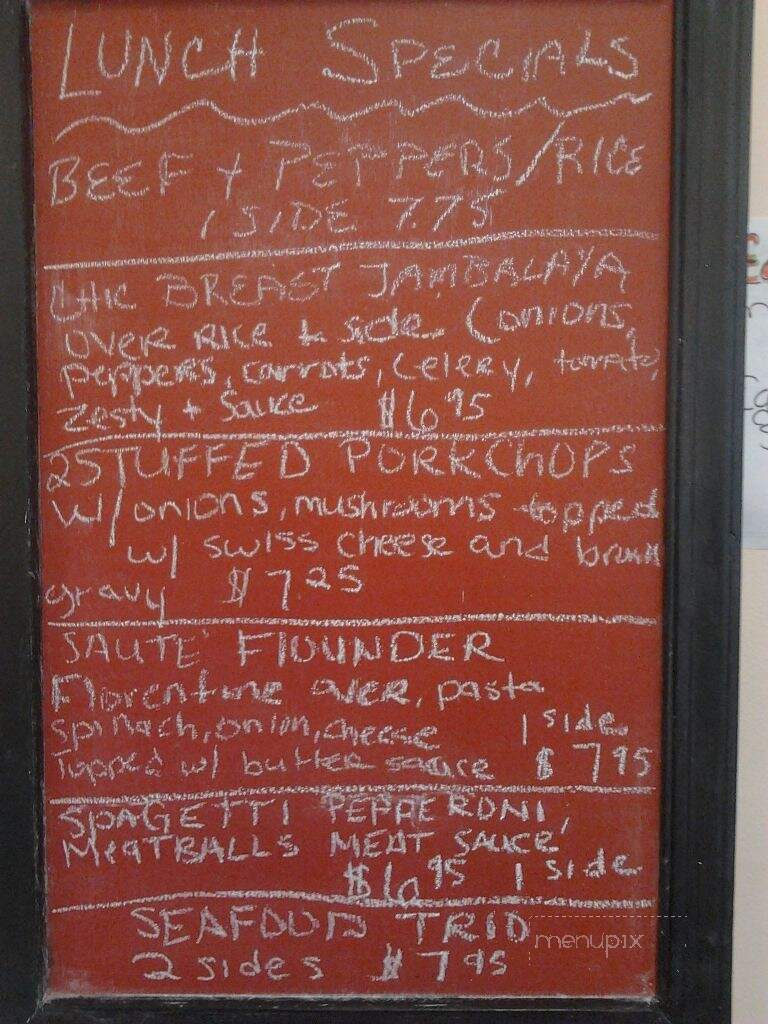 LUNCH SPECIALS
BEEF + PEPPERS/RICE
1 SIDE 7.75
CHIC BREAST JAMBALAYA
OVER RICE + side (ONIONS,
Peppers, carrots, Celery, tomato,
Zesty + Sauce $6 95
2 STUFFED PORKCHOPS
W/ onions, mushrooms topped
w/ swiss cheese and brown
gravy $7 25
SAUTE' FlOUNDER
Florentine over, pasta
spinach, onion, cheese 1 side
Topped w/ butter sauce $7 95
SPAGETTI PEPPERONI,
MEATBALLS MEAT SAUCE'
$6 95 1 side
SEAFOOD TRIO
2 sides $7 95
menupix